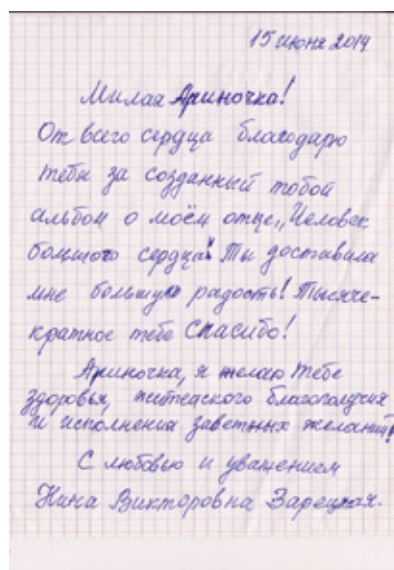 15 июня 2014
Милая Ариночка!
От всего сердца благодарю
тебя за созданный тобой
альбом о моём отце „Человек
большого сердца". Ты доставила
мне большую радость! Тысяче-
кратное тебе спасибо!
Ариночка, я желаю тебе
здоровья, житейского благополучия
и исполнения заветных желаний!
С любовью и уважением
Нина Викторовна Зарецкая.